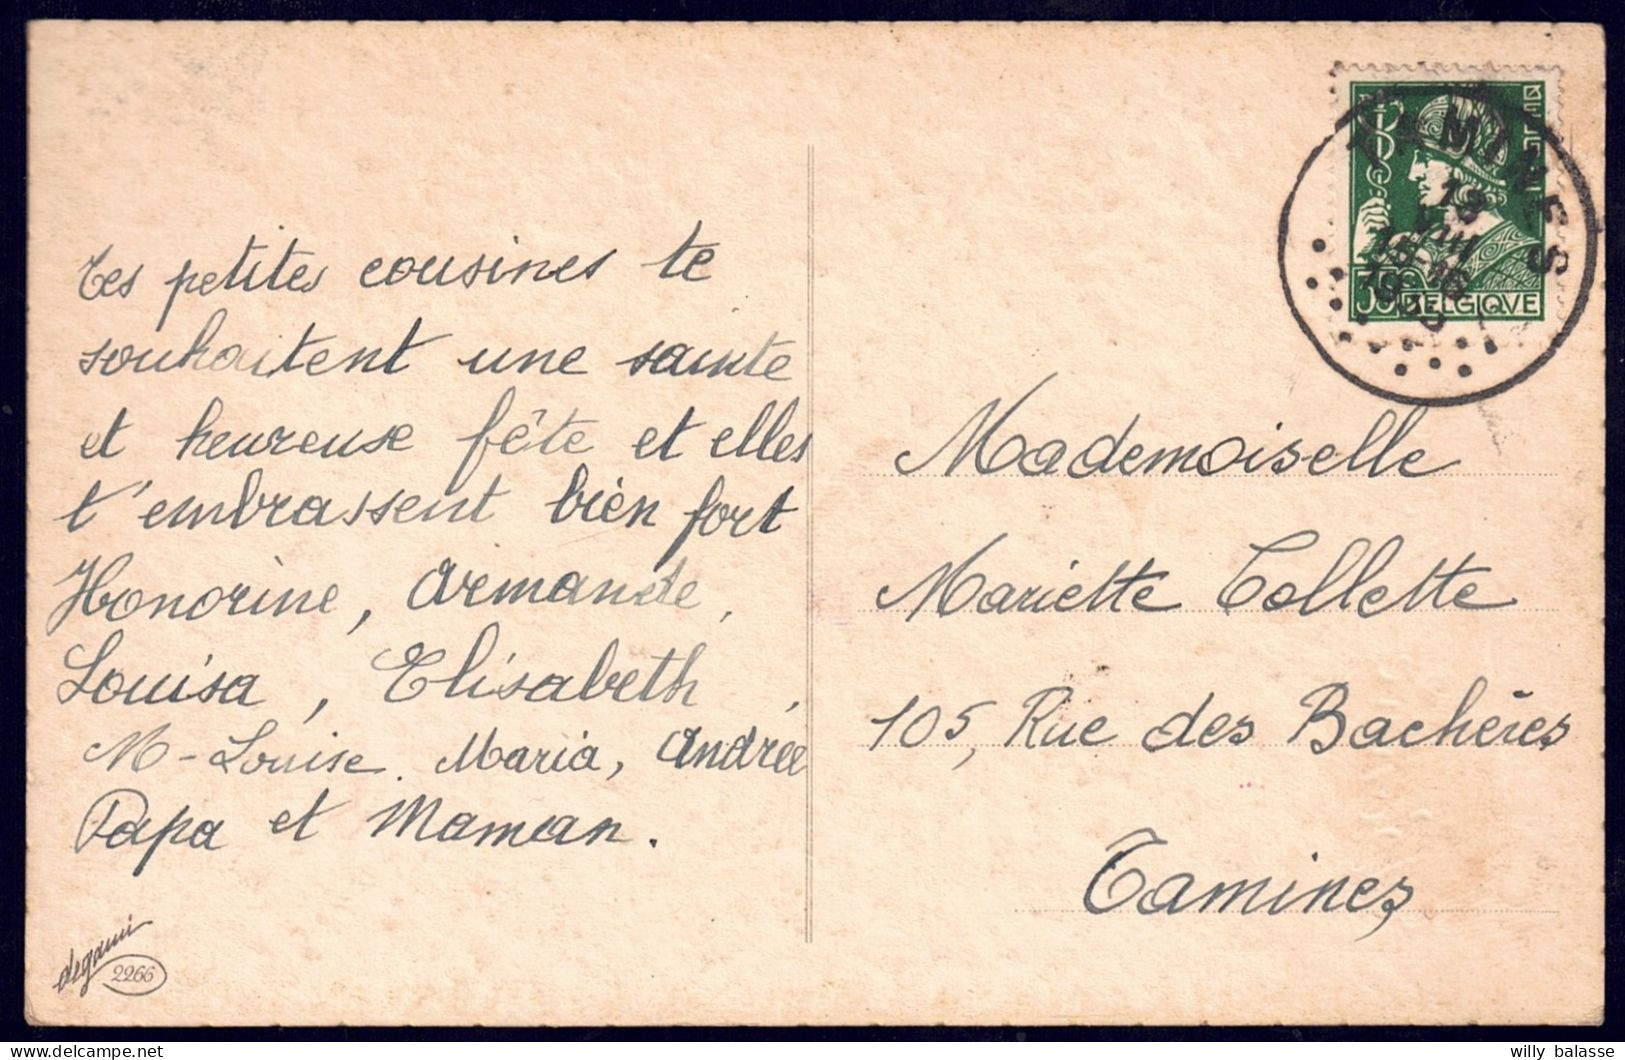 Tes petites cousines te
souhaitent une sainte
et heureuse fête et elles
t'embrassent bien fort
Honorine, Armande,
Louisa, Elisabeth,
M-Louise. Maria, Andrée
Papa et Maman.
degami
2266
TAMINES
13
VIII
15-16
1935
BELGIQVE
Mademoiselle
Mariette Collette
105, Rue des Bachères
Tamines
willy balasse